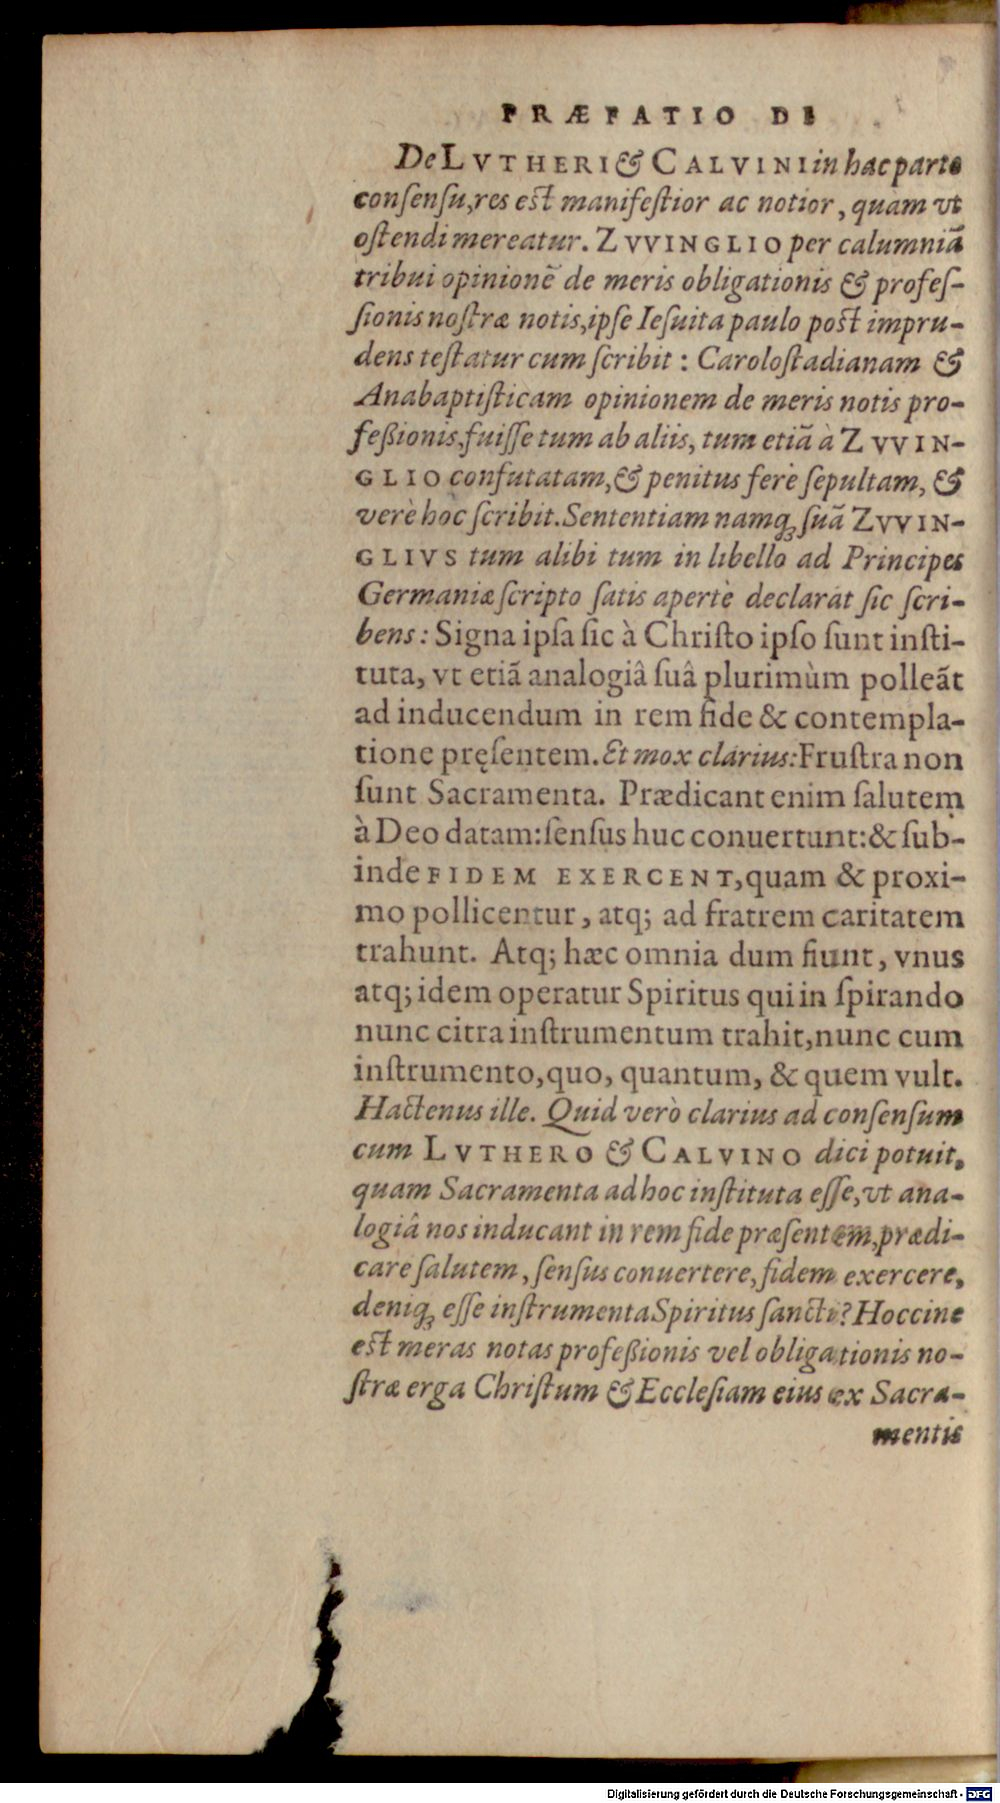 PRÆFATIO DE
De LVTHERI & CALVINI in hac parte
conſenſu, res eſt manifeſtior ac notior, quam vt
oſtendi mereatur. ZVVINGLIO per calumniã
tribui opinionẽ de meris obligationis & profeſ-
ſionis noſtræ notis, ipſe Ieſuita paulo poſt impru-
dens teſtatur cum ſcribit: Caroloſtadianam &
Anabaptiſticam opinionem de meris notis pro-
feßionis, fuiſſe tum ab aliis, tum etiã à ZVVIN-
GLIO confutatam, & penitus ferè ſepultam, &
verè hoc ſcribit. Sententiam namq; ſuã ZVVIN-
GLIVS tum alibi tum in libello ad Principes
Germaniæ ſcripto ſatis apertè declarat ſic ſcri-
bens: Signa ipſa ſic à Chriſto ipſo ſunt inſti-
tuta, vt etiã analogiâ ſuâ plurimùm polleãt
ad inducendum in rem fide & contempla-
tione pręſentem. Et mox clarius: Fruſtra non
ſunt Sacramenta. Prædicant enim ſalutem
à Deo datam: ſenſus huc conuertunt: & ſub-
inde FIDEM EXERCENT, quam & proxi-
mo pollicentur, atq; ad fratrem caritatem
trahunt. Atq; hæc omnia dum fiunt, vnus
atq; idem operatur Spiritus qui in ſpirando
nunc citra inſtrumentum trahit, nunc cum
inſtrumento, quo, quantum, & quem vult.
Hactenus ille. Quid verò clarius ad conſenſum
cum LVTHERO & CALVINO dici potuit,
quam Sacramenta ad hoc inſtituta eſſe, vt ana-
logiâ nos inducant in rem fide præſentem, prædi-
care ſalutem, ſenſus conuertere, fidem exercere,
deniq; eſſe inſtrumenta Spiritus ſancti? Hoccine
eſt meras notas profeßionis vel obligationis no-
ſtræ erga Chriſtum & Eccleſiam eius ex Sacra-
mentis
Digitalisierung gefördert durch die Deutsche Forschungsgemeinschaft - DFG